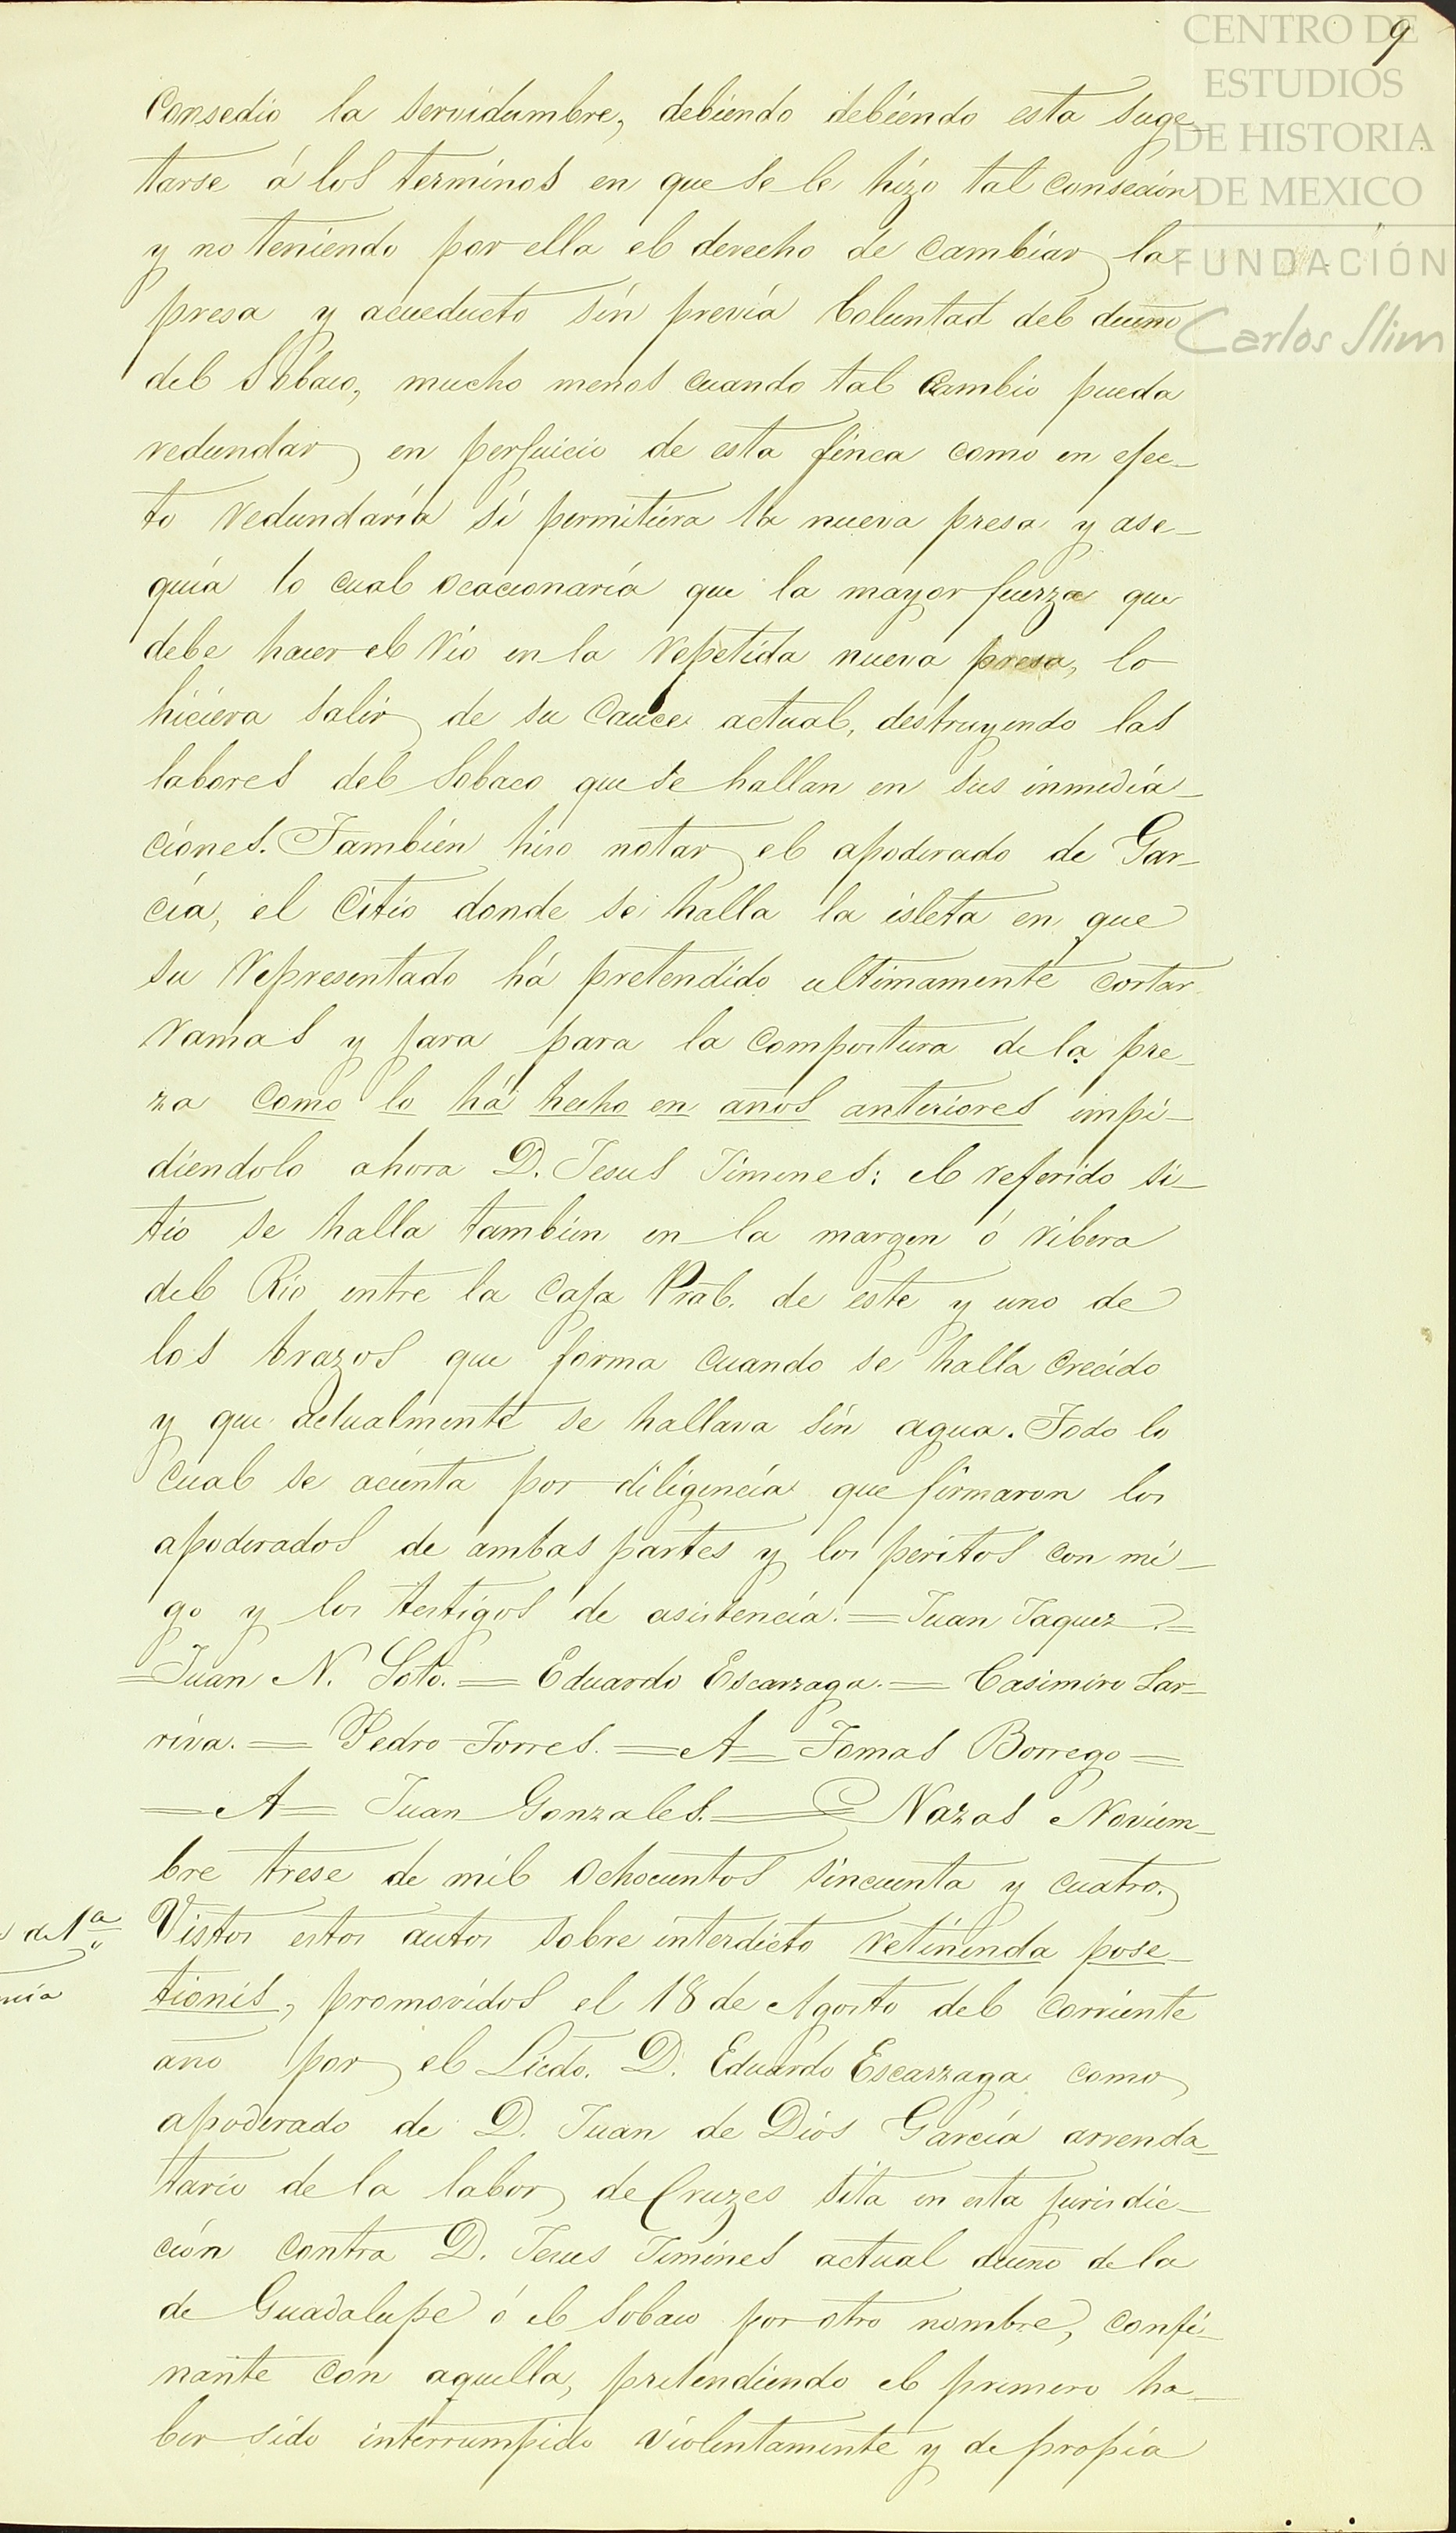 9
CENTRO DE
ESTUDIOS
DE HISTORIA
DE MEXICO
FUNDACIÓN
Carlos Slim
Consedio la servidumbre, debiendo debiendo esta suge-
tarse á los terminos en que se le hizo tal conseción
y no teniendo por ella el derecho de cambiar la
presa y acueducto sin previa boluntad del dueño
del Sobaco, mucho menos cuando tal cambio pueda
redundar en perjuicio de esta finca como en efec-
to redundaría si permitiera la nueva presa y ase-
quia lo cual ocacionaría que la mayor fuerza que
debe hacer el rio en la repetida nueva presa, lo
hiciera salir de su cauce actual, destruyendo las
labores del Sobaco que se hallan en sus inmedia-
ciones. Tambien hiso notar el apoderado de Gar-
cía, el citio donde se halla la isleta en que
su representado há pretendido ultimamente cortar
ramas y para para la compostura de la pre-
za como lo há hecho en años anteriores impi-
diendolo ahora D. Jesus Jimenes: el referido si-
tio se halla tambien en la margen ó ribera
del Rio entre la caja Pral. de este y uno de
los brazos que forma cuando se halla crecido
y que actualmente se hallava sin agua. Todo lo
cual se acienta por diligencia que firmaron los
apoderados de ambas partes y los peritos con mi-
go y los testigos de asistencia. = Juan Jaquez. =
= Juan N. Soto. = Eduardo Escarzaga. = Casimiro Lar-
riva. = Pedro Torres. = A = Tomas Borrego =
= A = Juan Gonzales. = Nazas Noviem-
bre trese de mil ochocientos sincuenta y cuatro.
de 1ª
Vistos estos autos sobre interdicto retinenda pose-
ncia
tionis, promovidos el 18 de Agosto del corriente
año por el Licdo. D. Eduardo Escarzaga como
apoderado de D. Juan de Dios García arrenda-
tario de la labor de Cruzes sita en esta jurisdic-
ción contra D. Jesus Jimines actual dueño de la
de Guadalupe ó el Sobaco por otro nombre, confi-
nante con aquella, pretendiendo el primero ha-
ber sido interrumpido violentamente y de propia